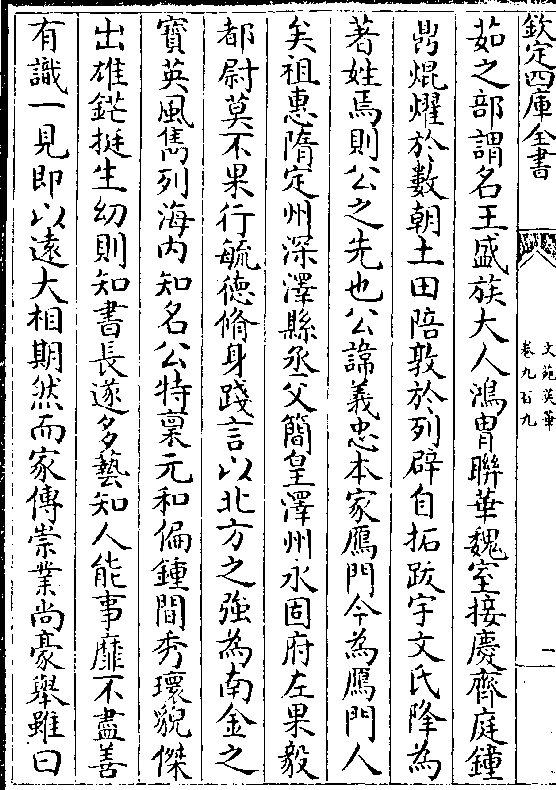 欽定四庫全書
文苑英華
卷九百九
一
茹之部謂名王盛族大人鴻冑聯華魏室接慶齊庭鐘
鼎焜燿於數朝土田陪敦於列辟自拓跋宇文氏降為
著姓焉則公之先也公諱義忠本家鴈門今為鴈門人
矣祖惠隋定州深澤縣丞父簡皇澤州永固府左果毅
都尉莫不果行毓德脩身踐言以北方之強為南金之
寶英風雋列海内知名公特稟元和偏鍾間秀瓌貌傑
出雄鋩挺生幼則知書長遂多藝知人能事靡不盡善
有識一見即以遠大相期然而家傳崇業尚豪舉雖曰